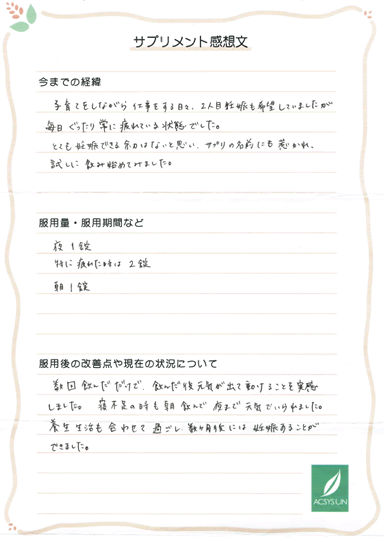 サプリメント感想文
今までの経緯
子育てをしながら仕事をする日々、2人目妊娠も希望していましたが
毎日ぐったり常に疲れている状態でした。
とても妊娠できる余力はないと思い、サプリの名前にも惹かれ、
試しに飲み始めてみました。
服用量・服用期間など
夜1錠
特に疲れた時は2錠
朝1錠
服用後の改善点や現在の状況について
数回飲んだだけで、飲んだ後元気が出て動けることを実感
しました。寝不足の時も朝飲んで夜まで元気でいられました。
養生生活も合わせて過ごし数ヶ月後には妊娠することが
できました。
ACSYSUN